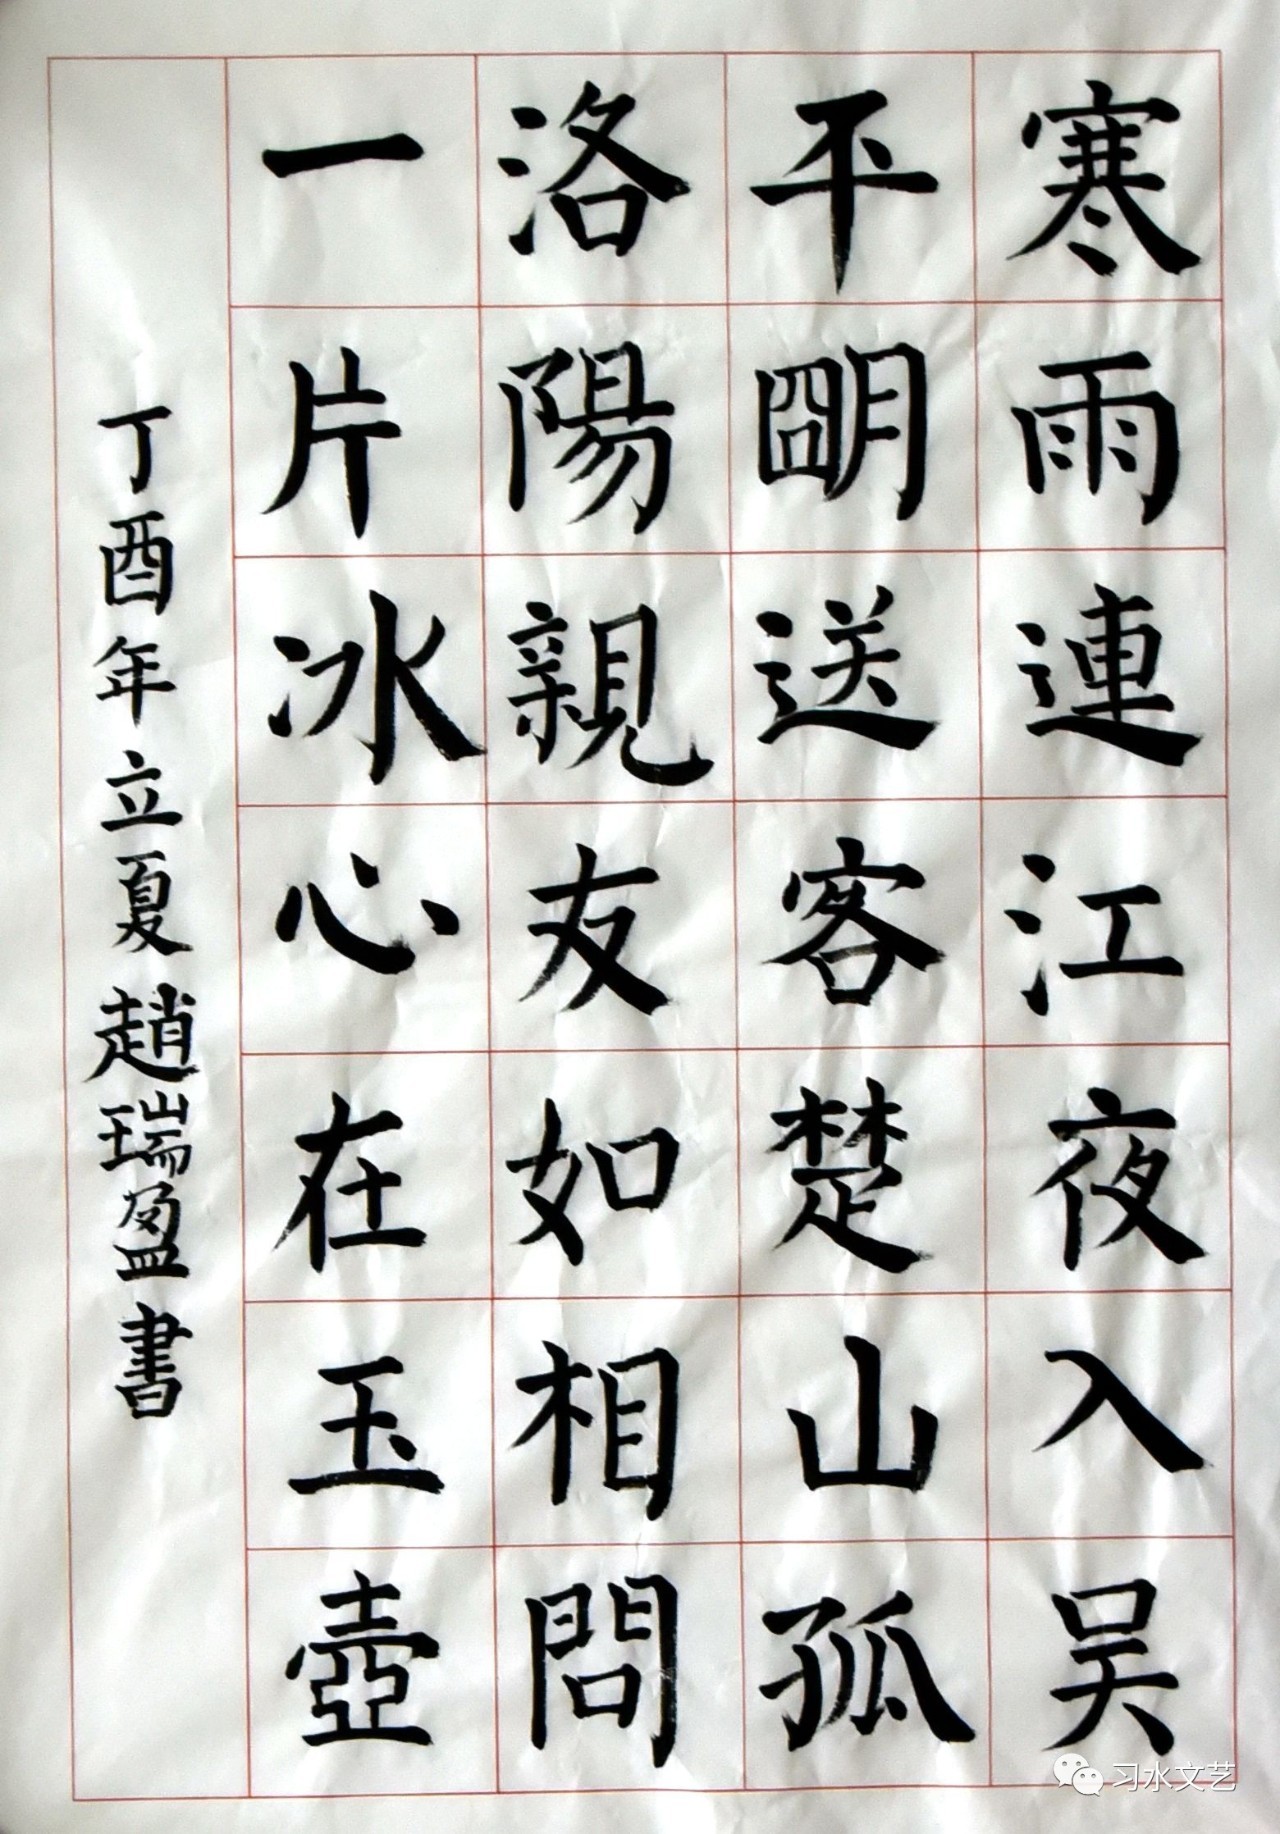 寒雨連江夜入吴
平明送客楚山孤
洛陽親友如相問
一片冰心在玉壺
丁酉年立夏趙瑞盈書
习水文艺